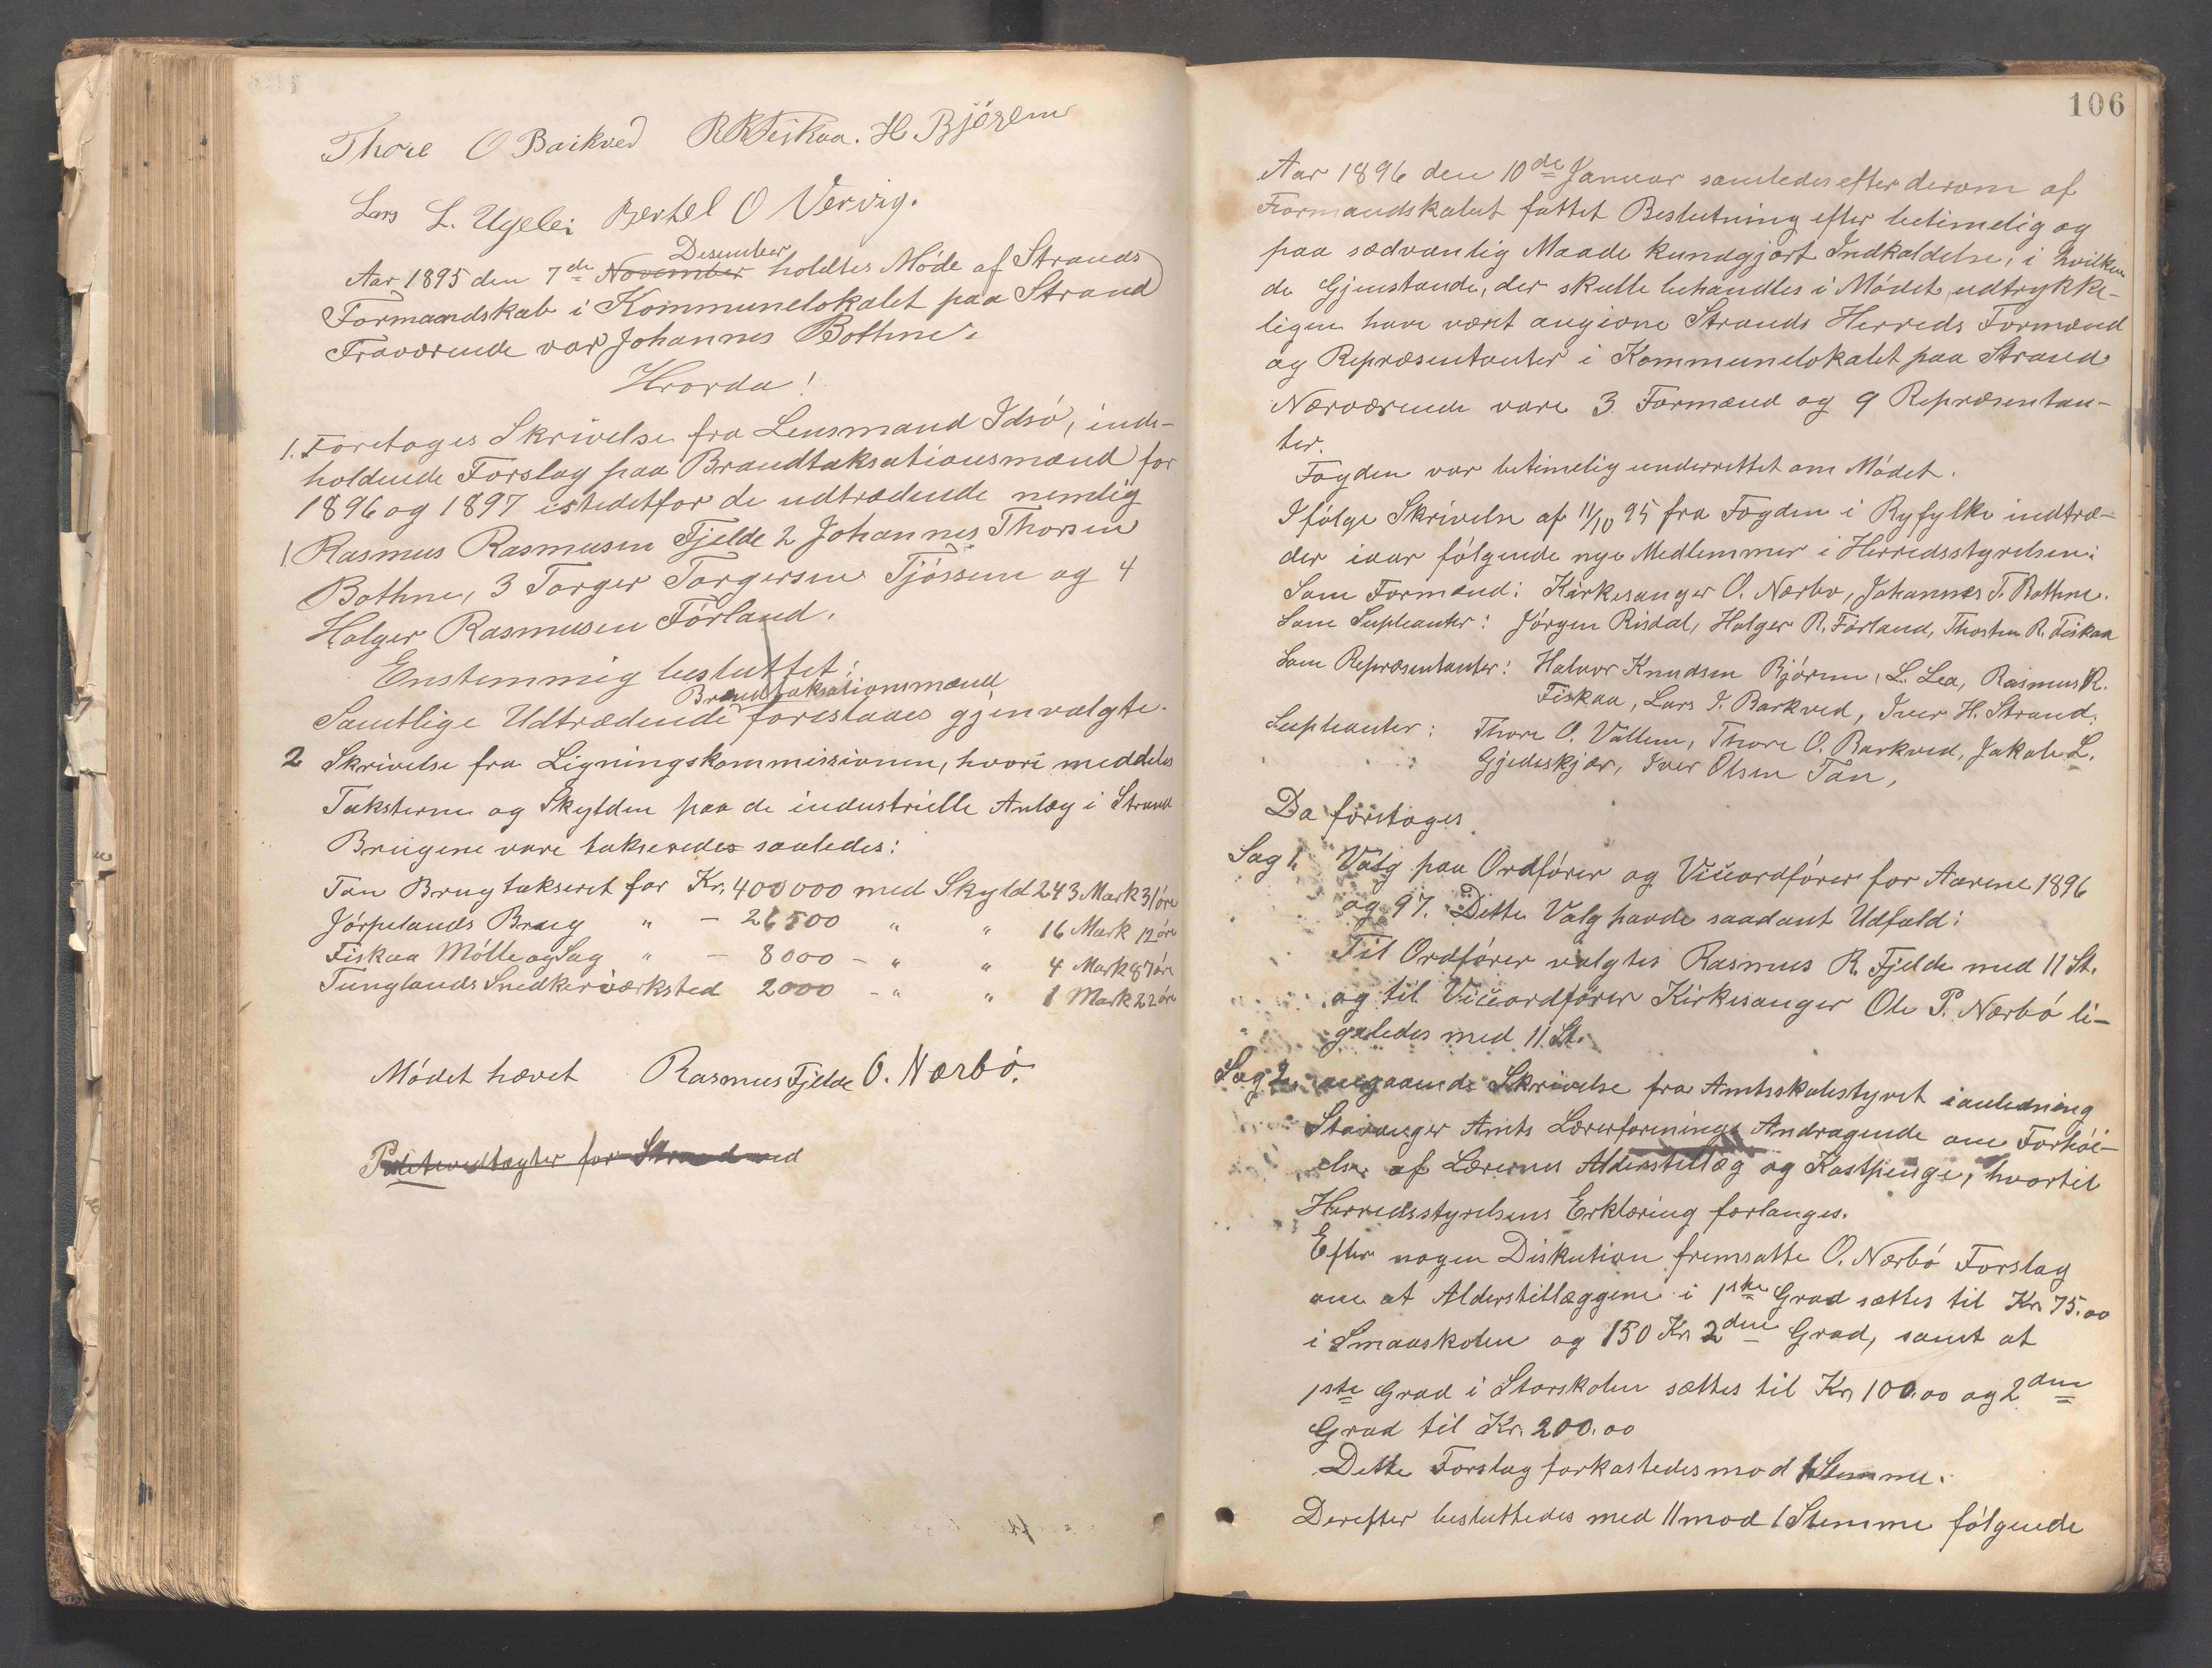 Thore O Barkved RKFiskaa. H Bjørem
Lars L. Ugelei Bertel O Vervig.
Desember
Aar 1895 den 7de November holdtes Møde af Strands
Formandskab i Kommunelokalet paa Strand
Fraværende var Johannes Bothne.
Hvorda!
1. Foretoges Skrivelse fra Lensmand Idsø, inde-
holdende Forslag paa Brandtaksationsmænd for
1896 og 1897 istedetfor de udtrædende nemlig
1 Rasmus Rasmusen Fjelde 2 Johannes Thorsen
Bothne, 3 Torger Torgersen Tjøssem og 4
Holger Rasmusen Førland.
Enstemmig besluttet:
Brandtaksationsmænd
Samtlige Udtrædende foreslaaes gjenvalgte.
2 Skrivelse fra Ligningskommissionen, hvori meddeles
Taksterne og Skylden paa de industrielle Anlæg i Strand
Brugene vare takserede saaledes:
Tan Brug takseret for Kr. 400000 med Skyld 243 Mark 31 øre
Jørpelands Brug " - 26500 " " 16 Mark 12 øre
Fiskaa Mølle og Sag " - 8000 - " " 4 Mark 87 øre
Tunglands Snedkerværksted 2000 - " " 1 Mark 22 øre
Mødet hævet Rasmus Fjelde O. Nærbø.
Politivedtægter for Strand ved
106
Aar 1896 den 10de Januar samledes efter derom af
Formandskabet fattet Beslutning efter betimelig og
paa sædvanlig Maade kundgjort Indkaldelse, i hvilken
de Gjenstande, der skulle behandles i Mødet, udtrykke-
ligen have været angivne Strands Herreds Formænd
og Repræsentanter i Kommunelokalet paa Strand
Nærværende vare 3 Formænd og 9 Repræsentan-
ter.
Fogden var betimelig underrettet om Mødet.
Ifølge Skrivelse af 11/10 95 fra Fogden i Ryfylke indtræ-
der iaar følgende nye Medlemmer i Herredsstyrelsen:
Som Formænd: Kirkesanger O. Nærbø, Johannes T. Bothne.
Som Supleanter: Jørgen Risdal, Holger R. Førland, Thosten R. Fiskaa
Som Repræsentanter: Halvor Knudsen Bjørem, L. Lea, Rasmus K.
Fiskaa, Lars I. Barkved, Iver H. Strand.
Supleanter: Thore O. Vallem, Thore O. Barkved, Jakob L.
Gjedeskjær, Iver Olsen Tan,
Da foretoges
Sag 1. Valg paa Ordfører og Viceordfører for Aarene 1896
og 97. Dette Valg havde saadant Udfald:
Til Ordfører valgtes Rasmus R. Fjelde med 11 St.
og til Viceordfører Kirkesanger Ole P. Nærbø li-
geledes med 11 St.
Sag 2. angaaende Skrivelse fra Amtsskolestyret ianledning
Stavanger Amts Lærerforenings Andragende om Forhøi-
else af Lærernes Alderstillæg og Kostpenge, hvortil
Herredsstyrelsens Erklæring forlanges.
Efter nogen Diskution fremsatte O. Nærbø Forslag
om at Alderstillæggene i 1ste Grad sættes til Kr. 75.00
i Smaaskolen og 150 Kr 2den Grad, samt at
1ste Grad i Storskolen sættes til Kr. 100.00 og 2den
Grad til Kr. 200.00
Dette Forslag forkastedes mod 1 Stemme.
Derefter besluttedes med 11 mod 1 Stemme følgende